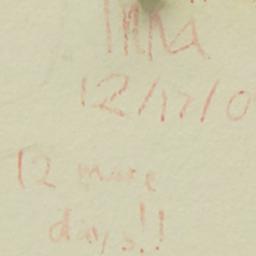 12/17/0
12 more
days!!